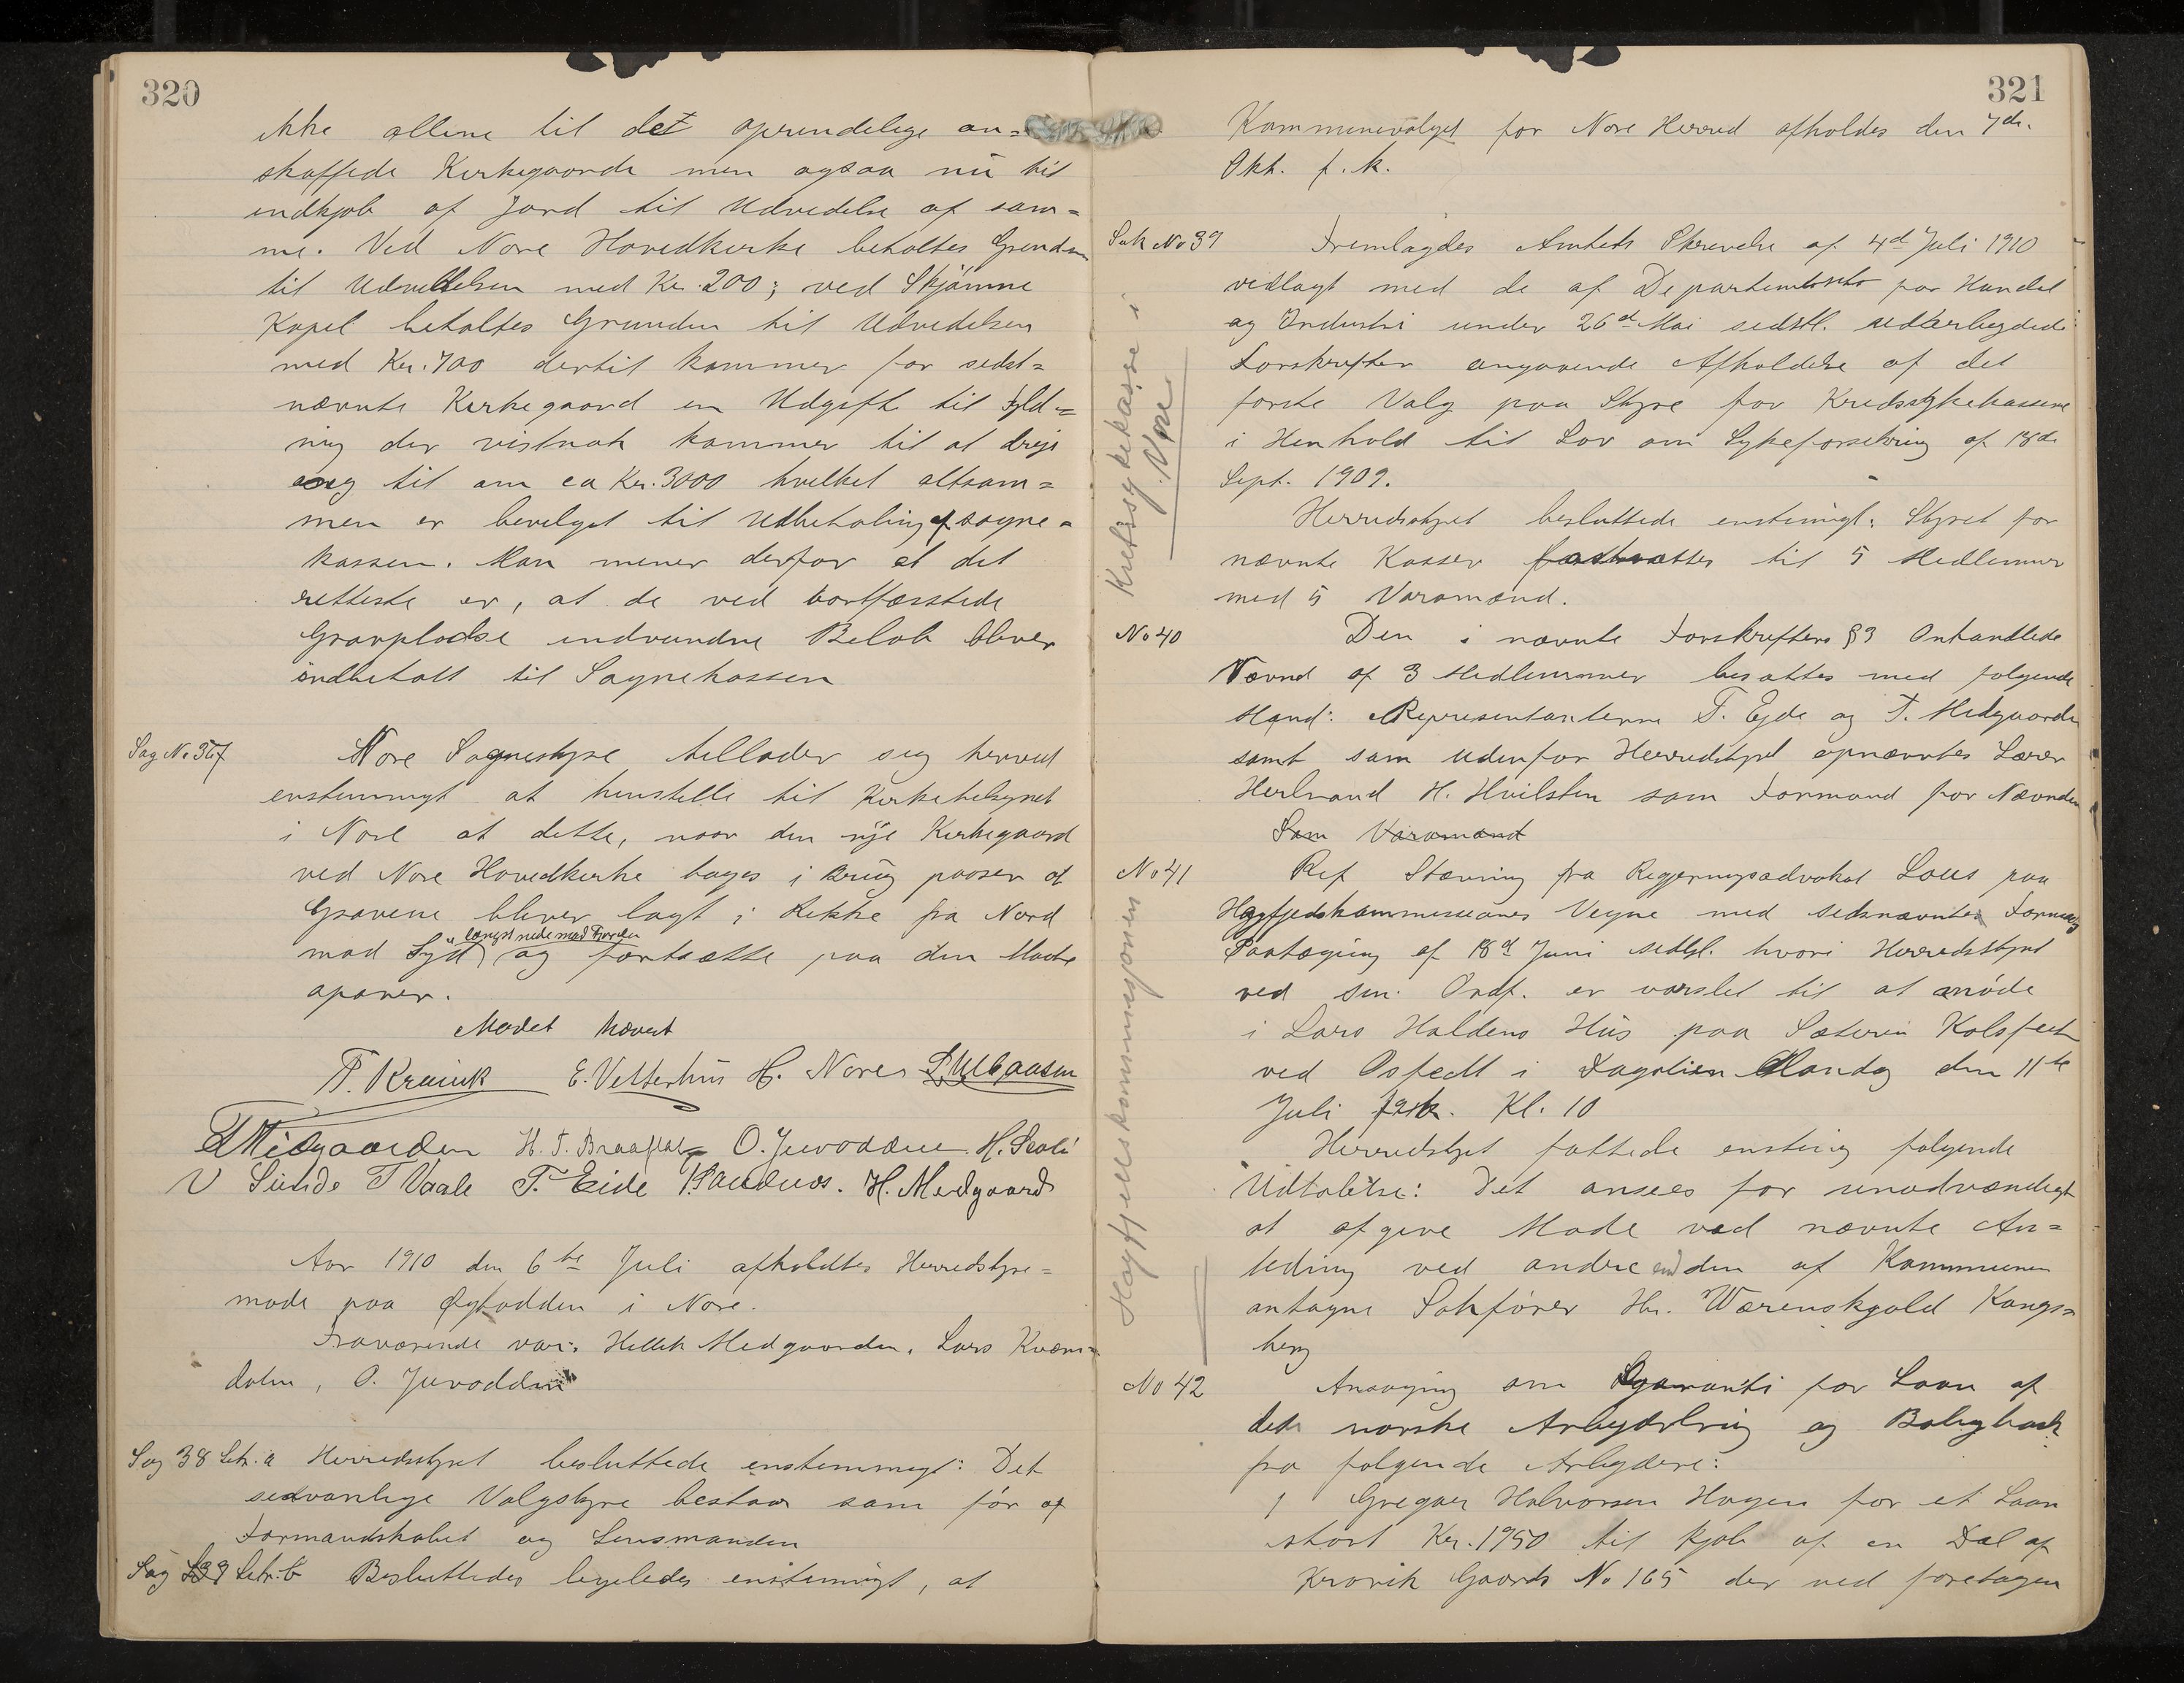 320
ikke allene til det oprindelige an=
skaffede Kirkegaarde men ogsaa nu til
indkjøb af Jord til Udvidelse af sam=
me. Ved Nore Hovedkirke betaltes Grunden
til Udvidelsen med Kr. 200; ved Skjønne
Kapel betaltes Grunden til Udvidelsen
med Kr. 700 dertil kommer for sidst=
nævnte Kirkegaard en Udgift til Fyld=
ning der vistnok kommer til at dreje
sig til om ca Kr. 3000 hvilket altsam=
men er bevilget til Udbetaling af sogne=
kassen. Man mener derfor at det
retteste er, at de ved bortfæstede
Gravpladse indvundne Beløb bliver
indbetalt til Sognekassen
Sag No 37
Nore Sognestyre tillader sig herved
enstemmigt at henstille til Kirketilsynet
i Nore at dette, naar den nye Kirkegaard
ved Nore Hovedkirke tages i Brug passer at
Gravene bliver lagt i Rekke fra Nord
længst nede mod Fjorden
mod Syd og fortsætte paa den Maade
opover.
Mødet hævet
T. Kravik E. Vetterhus H. Nore
T Medgaarden H. T. Braaflat O. Juvodden H. Skoli
Sunde T Vaale T. Eide H. Medgaard
Aar 1910 den 6te Juli afholdtes Herredstyre=
møde paa i Nore.
Fraværende var: Hellik Medgaarden, Lars Kværn=
dalen, O. Juvodden
Sag 38 Litr. a Herredsstyret besluttede enstemmigt: Det
sedvanlige Valgstyre bestaar som før af
Formandskabet og Lensmanden
Sag 39 Litr. b Besluttedes ligeledes enstemmigt, at
321
Kommunevalget for Nore Herred afholdes den 7de
Okt. f. k.
Sak No 39
Fremlagdes Amtets Skrivelse af 4de Juli 1910
vedlagt med de af Departementet for Handel
og Industri under 26de Mai sidstl. udarbeidede
Forskrifter angaaende Afholdelse af det
første Valg paa Styre for Kredssykekassene
i Henhold til Lov om Sykeforsikring af 18de
Sept. 1909.
Kretssykekasse i
Nore
Herredsstyret besluttede enstemigt: Styret for
nævnte Kasser fastsættes til 5 Medlemmer
med 5 Varamænd.
No 40
Den i nævnte Forskrifters § 3 Omhandlede
Nævnd af 3 Medlemmer besættes med følgende
Mænd: Representanterne T. Ejde og T. Medgaarden
samt som udenfor Herredstyret opnævntes Lærer
Herbrand H. Hvilsten som Formand for Nævnden
Som Varamænd
No 41
Ref Stævning fra Regjeringsadvokat Lous paa
Høgfjeldskommissionens Vegne med sidsnævntes Formands
Paategning af 18de Juni sidstl. hvori Herredsstyret
ved sin Ordf. er varslet til at møde
i Lars Haldens Hus paa Sæteren
ved i Dagalien Mandag den 11te
Juli Kl. 10
Høgfjellskommisjonen
Herredstyret fattede enstemig følgende
Udtalelse: Det ansees for unødvændigt
at afgive Møde ved nævnte An=
ledning ved andre end den af Kommunen
antagne Sakfører Hr. Wærenskjold Kongs=
berg
No 42
Ansøgning om Garanti for Laan af
den norske Arbeiderbrug og Boligbank
fra følgende Arbeidere:
1 Gregar Halvorsen Hagen for et Laan
stort Kr. 1950 til Kjøb af en Del af
Kravik Gaards No 165 der ved foretagen